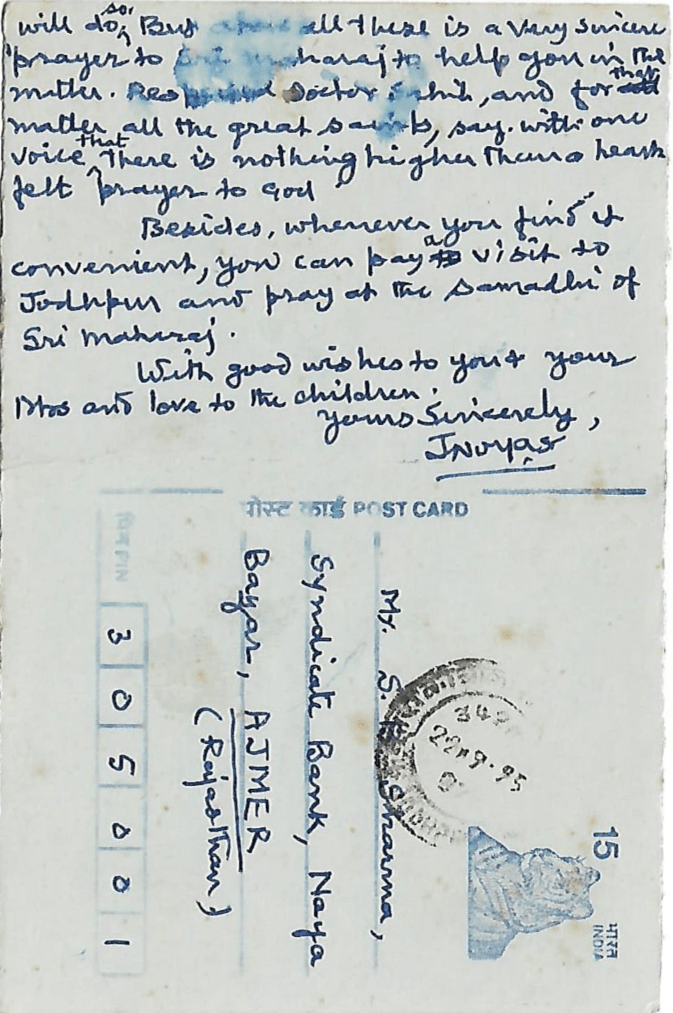 will do so, But above all there is a very sincere
prayer to Sri Maharaj to help you in the
matter. Respected Doctor Sahib, and for that
matter, all the great saints, say with one
voice that there is nothing higher than a heart
felt prayer to God.
Besides, whenever you find it
convenient, you can pay a visit to
Jodhpur and pray at the samadhi of
Sri Maharaj.
With good wishes to you & your
Mrs and love to the children.
Yours Sincerely,
JNVyas
पोस्ट कार्ड POST CARD
Mr. S. Sharma,
Syndicate Bank, Naya
Bazar, AJMER
(Rajasthan)
पिन PIN 305001
22 9.95
15
भारत
INDIA